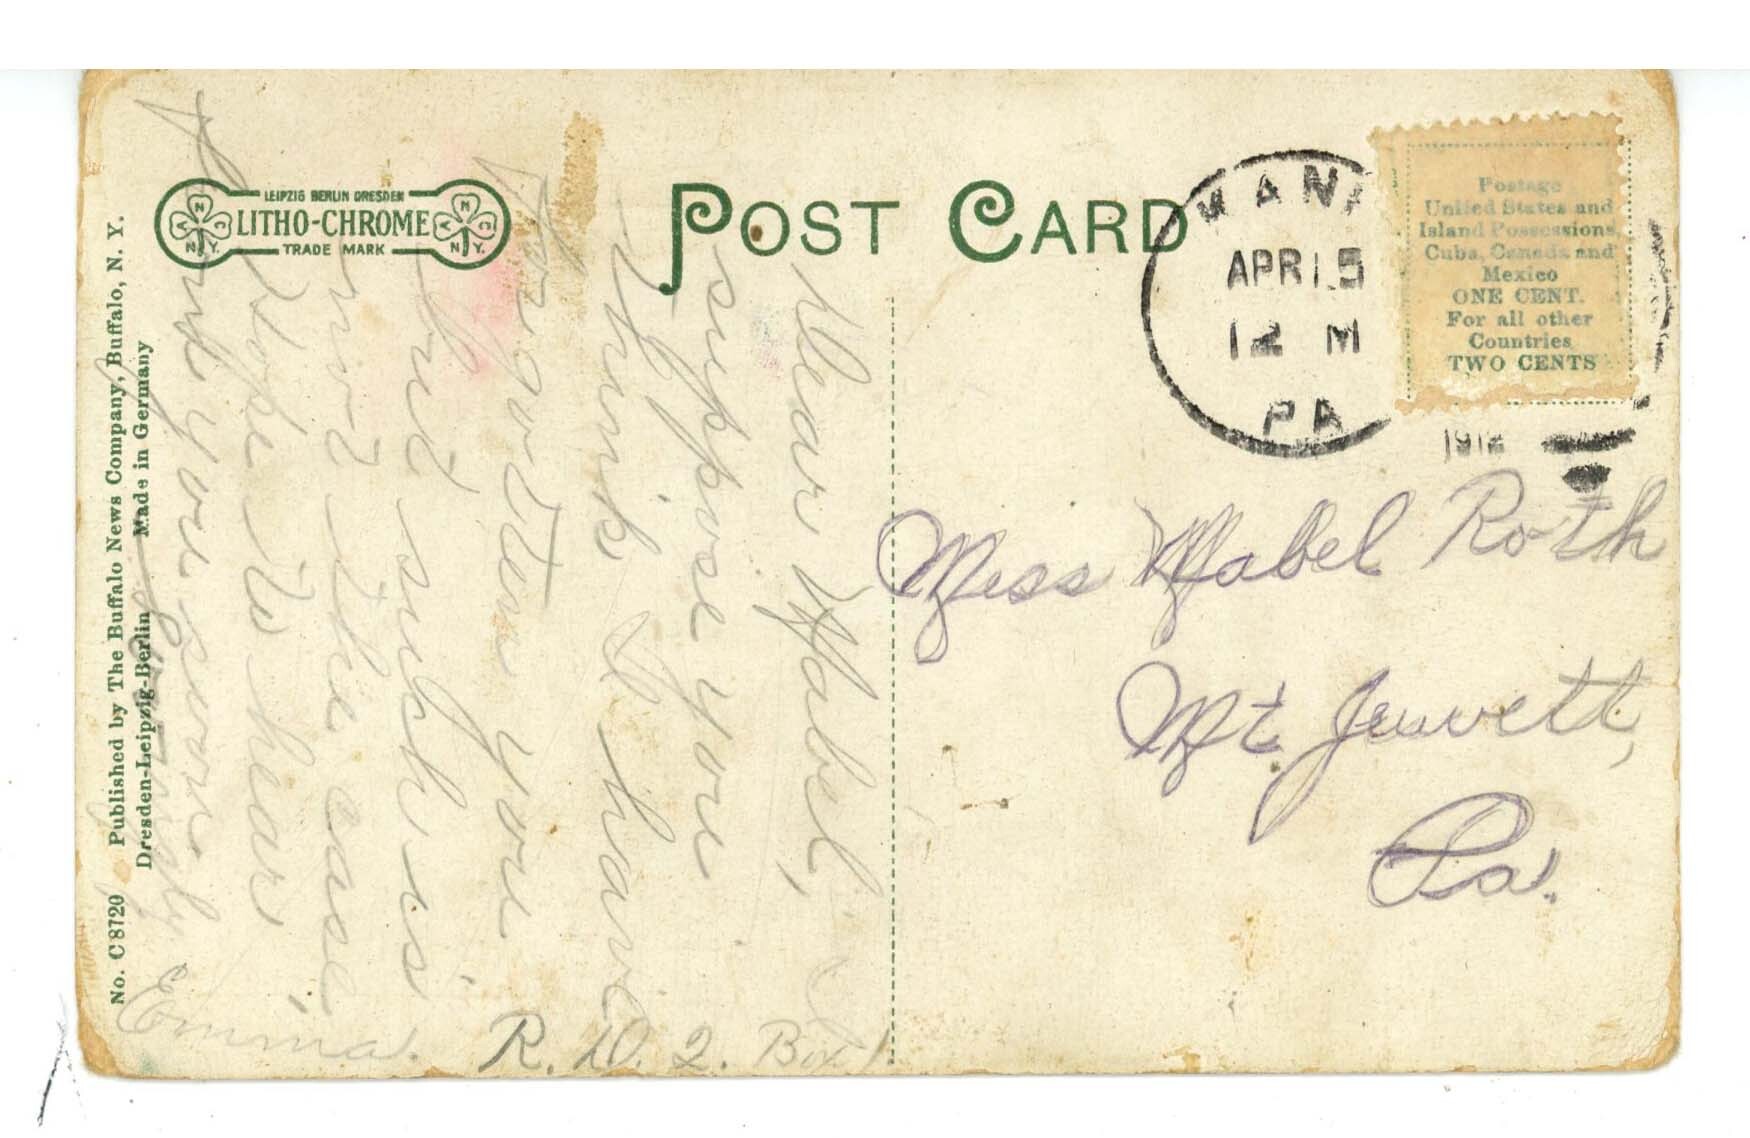 LEIPZIG BERLIN DRESDEN
LITHO-CHROME
TRADE MARK
N. Y.
N. Y.
POST CARD
APR 15
12 M
PA
1912
Postage
United States and
Island Possessions,
Cuba, Canada and
Mexico
ONE CENT.
For all other
Countries
TWO CENTS
No. C 8720 Published by The Buffalo News Company, Buffalo, N. Y.
Dresden-Leipzig-Berlin Made in Germany
Dear Mabel, I
suppose you
think I have
forgotten you
but such is
not the case.
Hope to hear
from you soon
Emma.
R. D. 2. Box 1
Miss Mabel Roth
Mt Jewett,
Pa.